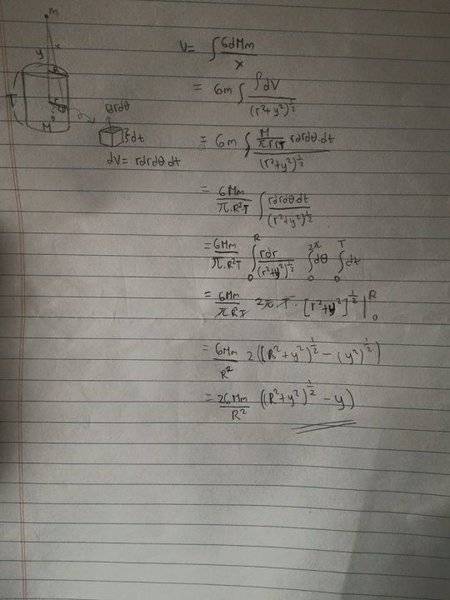 m
y
x
R
T
M
rdrdθ
dt
dV = rdrdθ dt
V = ∫ GdMm / x
= Gm ∫ ρdV / (r²+y²)^½
= Gm ∫ M/πR²T rdrdθ.dt / (r²+y²)^½
= GMm / π.R²T ∫ rdrdθdt / (r²+y²)^½
= GMm / π.R²T ∫₀ᴿ rdr / (r²+y²)^½ ∫₀^2π dθ ∫₀ᵀ dt
= GMm / πR²T 2π.T. [r²+y²]^½ |₀ᴿ
= GMm / R² 2((R²+y²)^½ - (y²)^½)
= 2GMm / R² ((R²+y²)^½ - y)